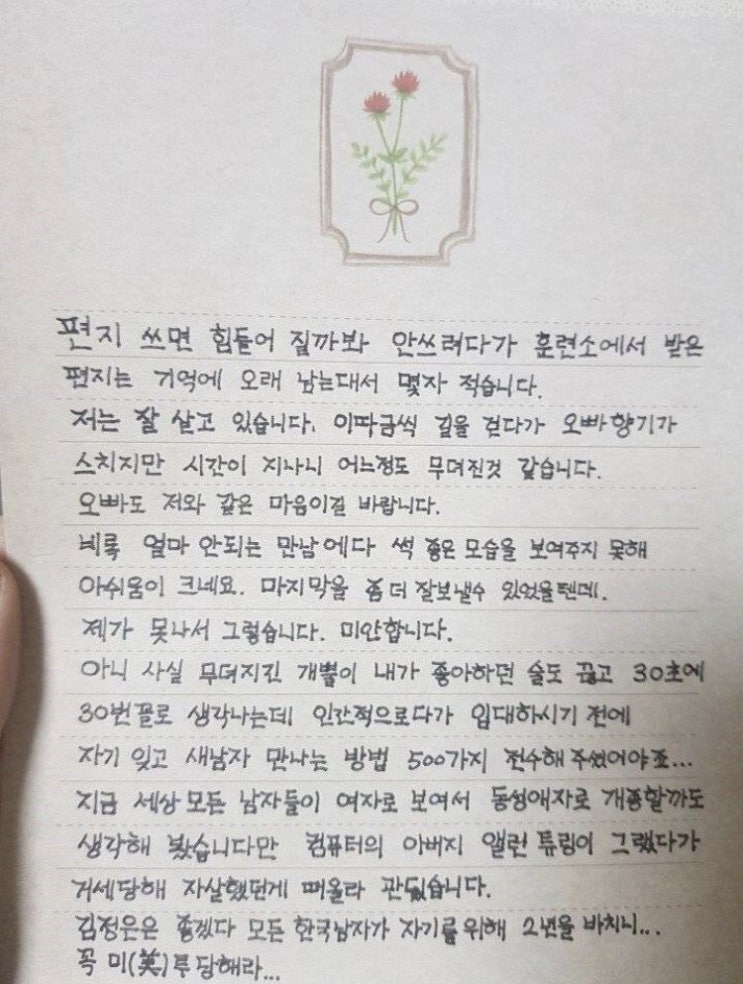 편지 쓰면 힘들어 질까봐 안쓰려다가 훈련소에서 받은
편지는 기억에 오래 남는대서 몇자 적습니다.
저는 잘 살고 있습니다. 이따금씩 길을 걷다가 오빠향기가
스치지만 시간이 지나니 어느정도 무뎌진것 같습니다.
오빠도 저와 같은 마음이길 바랍니다.
비록 얼마 안되는 만남에다 썩 좋은 모습을 보여주지 못해
아쉬움이 크네요. 마지막을 좀 더 잘보낼수 있었을텐데.
제가 못나서 그렇습니다. 미안합니다.
아니 사실 무뎌지긴 개뿔이 내가 좋아하던 술도 끊고 30초에
30번꼴로 생각나는데 인간적으로다가 입대하시기 전에
자기 잊고 새남자 만나는 방법 500가지 전수해주셨어야죠...
지금 세상모든 남자들이 여자로 보여서 동성애자로 개종할까도
생각해 봤습니다만 컴퓨터의 아버지 앨런튜링이 그랬다가
거세당해 자살했던게 떠올라 관뒀습니다.
김정은은 좋겠다 모든 한국남자가 자기를위해 2년을 바치니...
꼭 미(美)투당해라...